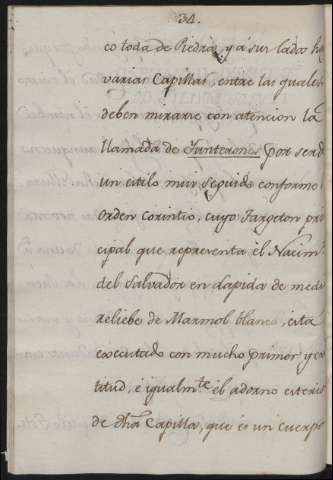 34.
co toda de Piedra, y á sus lados ha
varias Capillas, entre las quales
deben mirarse con atencion la
llamada de Junterones por ser de
un estilo muy seguido conforme
orden corintio, cuyo Targeton prin
cipal que representa el Nacim
del Salvador en lapida de medi
reliebe de Marmol blanco, está
executado con mucho primor y ex
titud, é igualmte el adorno exterio
de dha Capilla, que es un cuerpo